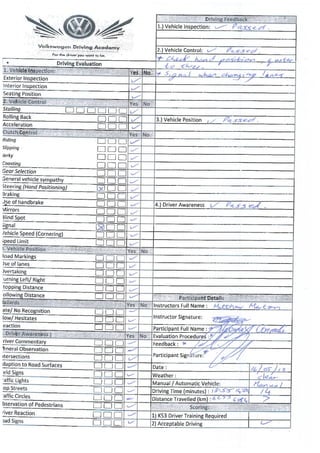 Volkswagen Driving Academy
For the driver you want to be.
Driving Evaluation
1. Vehicle Inspection: Yes No.
Exterior Inspection
Interior Inspection
Seating Position
2. Vehicle Control Yes No
Stalling
Rolling Back
Acceleration
Clutch Control
Riding
Slipping
Jerky
Coasting
Gear Selection
General vehicle sympathy
Steering (Hand Positioning)
Braking
Use of handbrake
Mirrors
Blind Spot
Signal
Vehicle Speed (Cornering)
Speed Limit
Vehicle Position Yes No
Road Markings
Use of lanes
Overtaking
Turning Left/ Right
Stopping Distance
Following Distance
Hazards Yes No
Late/ No Recognition
Slow/ Hesitates
Reaction
Driver Awareness Yes No
Driver Commentary
General Observation
Intersections
Adaption to Road Surfaces
Field Signs
Traffic Lights
Stop Streets
Traffic Circles
Observation of Pedestrians
Driver Reaction
Road Signs
Driving Feedback
1.) Vehicle Inspection: Passed.
2.) Vehicle Control: Passed
* Check hand position, quarter
to three.
* Signal when changing lanes
3.) Vehicle Position Passed.
4.) Driver Awareness Passed.
Participant Details
Instructors Full Name:
Instructor Signature:
Participant Full Name:
Evaluation Procedures
Feedback:
Participant Signature:
Date:
Weather: clear
Manual / Automatic Vehicle: Manual
Driving Time (minutes):
Distance Travelled (km)
Scoring:
1) KS3 Driver Training Required
2) Acceptable Driving